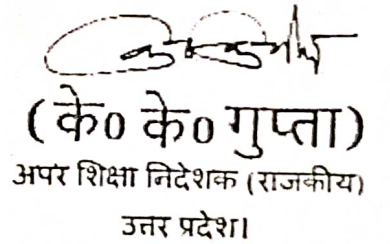 (के० के० गुप्ता)
अपर शिक्षा निदेशक (राजकीय)
उत्तर प्रदेश।